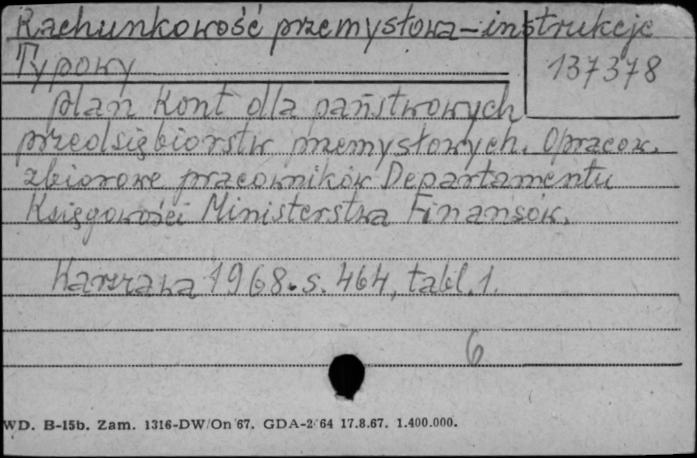 Rachunkowość przemysłowa – instrukcje
Typowy
137378
plan kont dla państwowych
przedsiębiorstw przemysłowych. Opracow.
zbiorowe pracowników Departamentu
Księgowości Ministerstwa Finansów.
Warszawa 1968. s. 464, tabl. 1.
6
WD. B-15b. Zam. 1316-DW/On 67. GDA-2/64 17.8.67. 1.400.000.